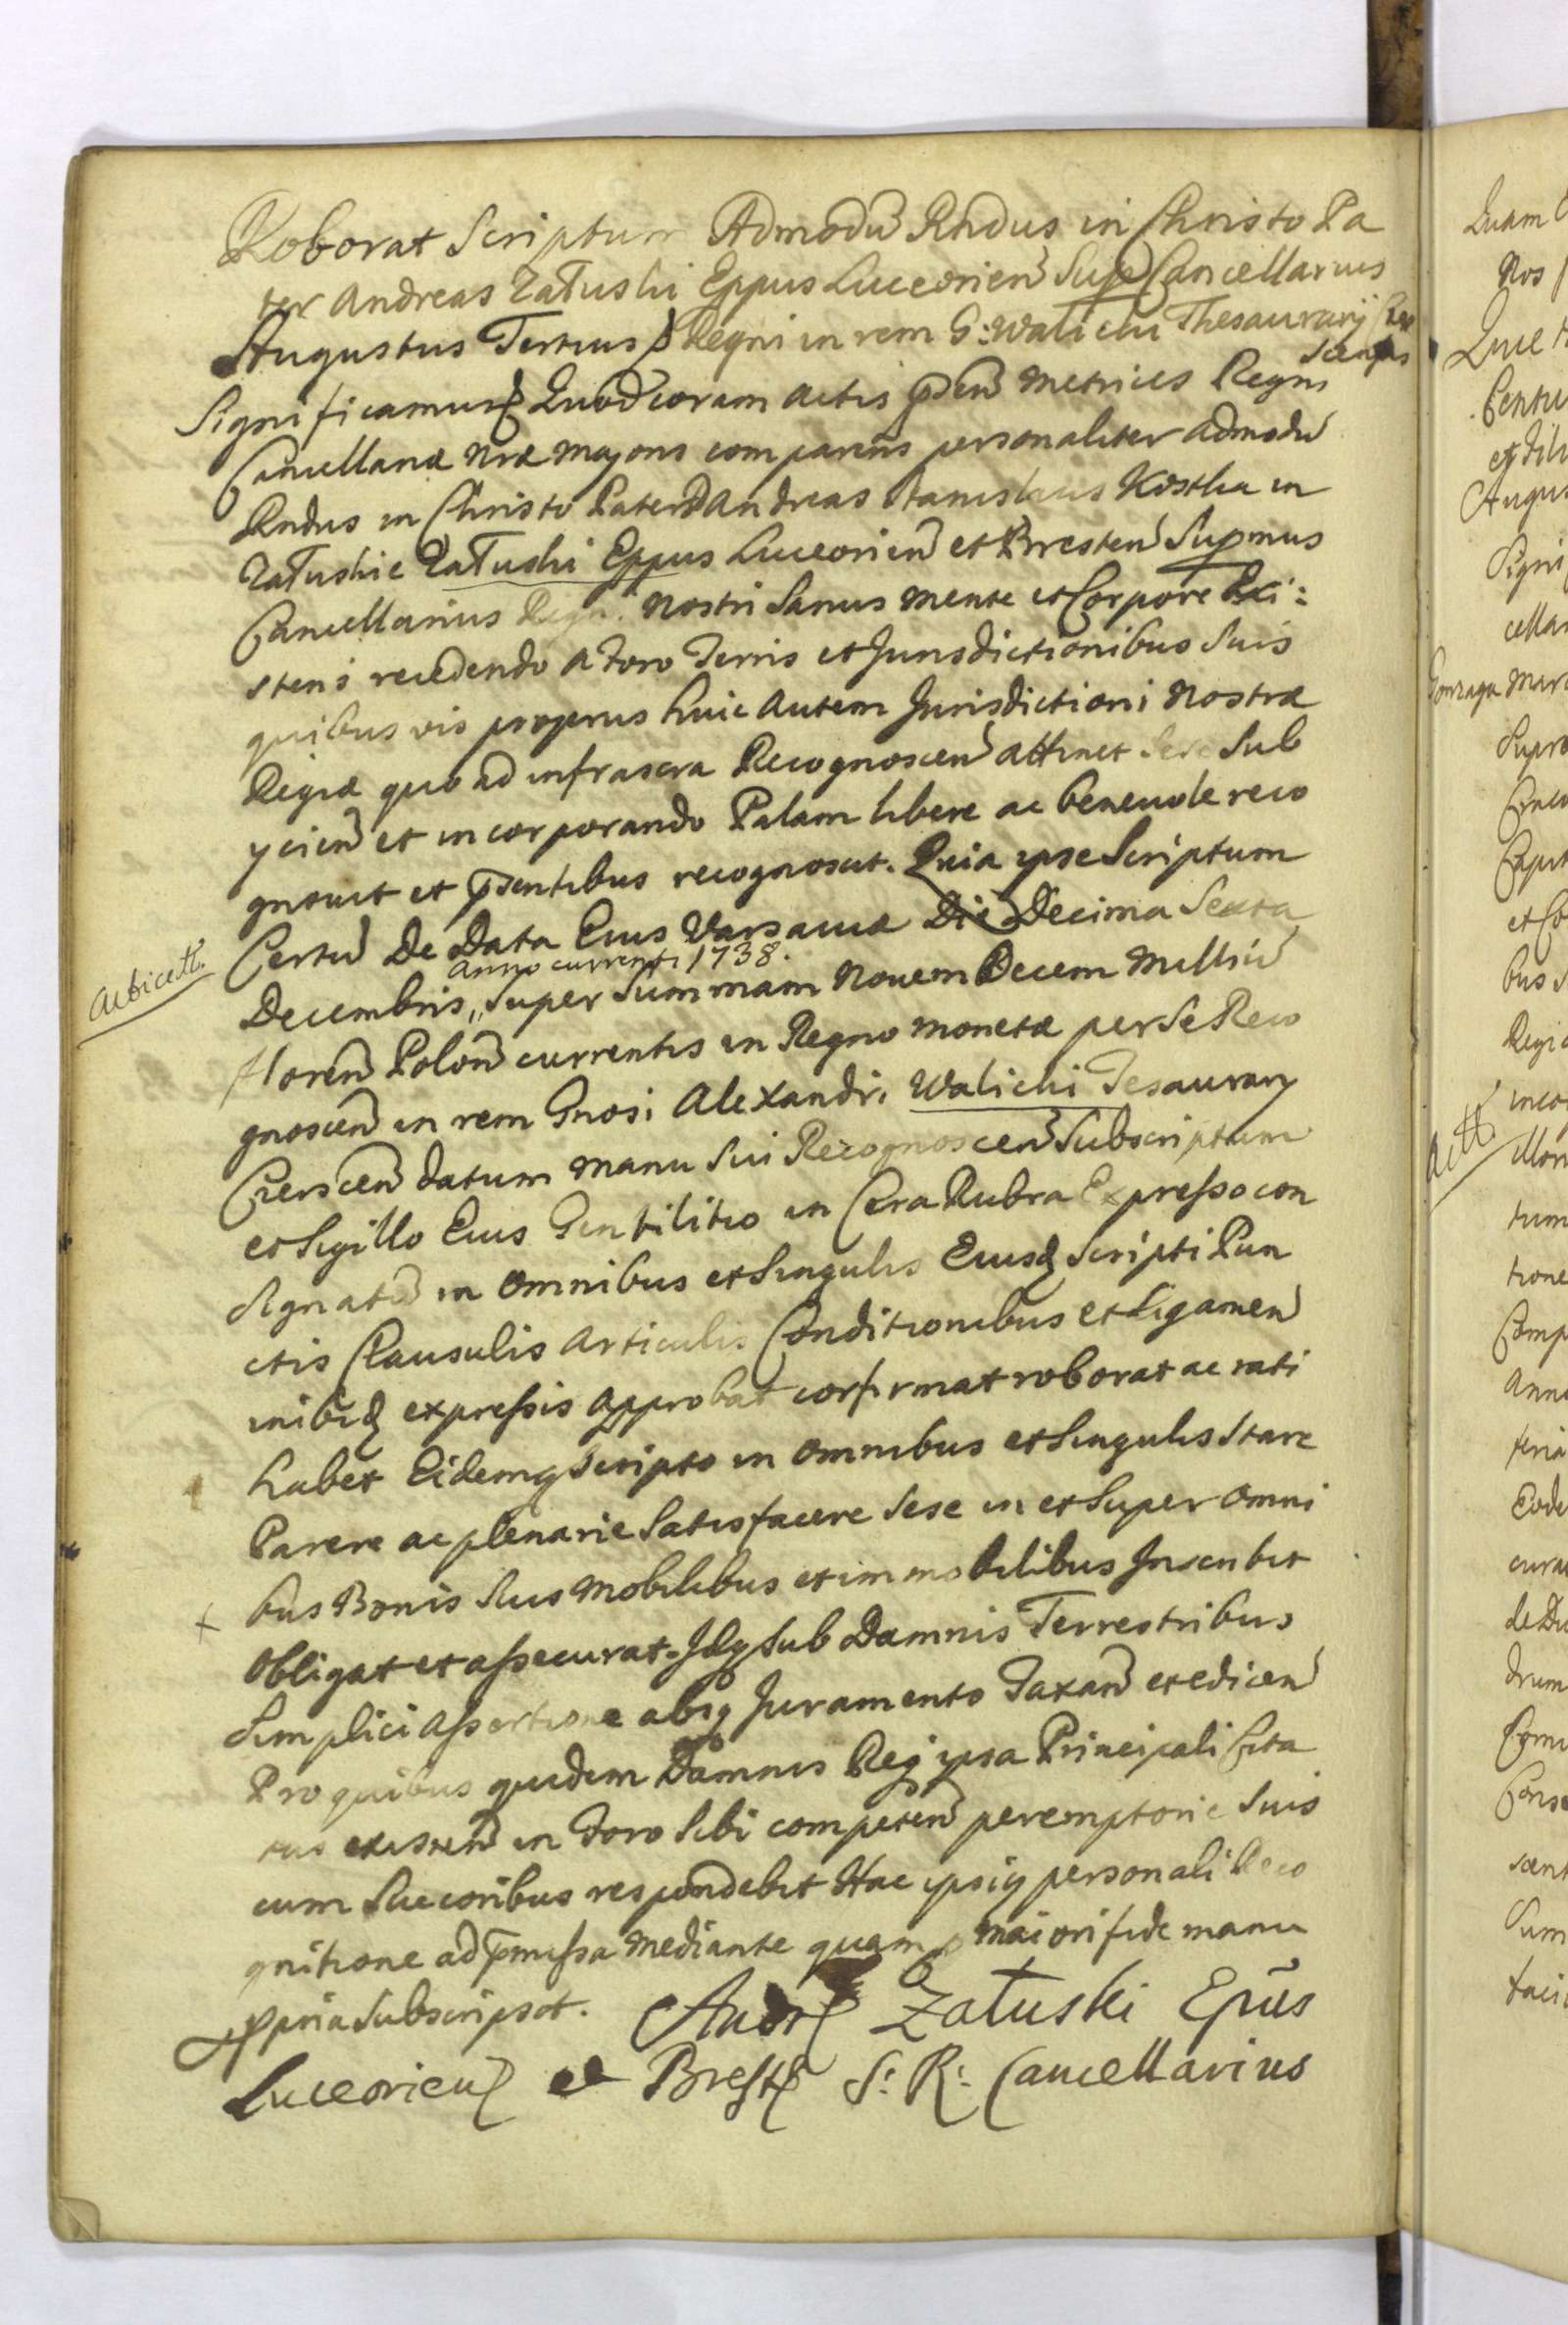 Roborat Scriptum Admodũ Rñdus in Christo Pa
ter Andreas Załuski Eppus Luceorień Sup Cancellarius
Augustus Tertius Regni in rem G: Walichi Thesaurarij Czer
scensis
Significamus Quod coram Actis pñsen Metrices Regni
Cancellariæ Nræ Majoris comparens personaliter Admodũ
Rndus in Christo Pater D Andreas Stanislaus Kostka in
Załuskie Załuski Eppus Luceorień et Bresteń Supmus
Cancellarius Regni Nostri Sanus mente et Corpore Exi:
stens recedendo a Foro Terris et Jurisdictionibus Suis
quibusvis proprijs huic autem Jurisdictioni Nostræ
Regiæ quo ad infrascra Recognoscen attinet Sese Sub
yicień et incorporando Palam libere ac benevole reco
gnovit et pñsentibus recognoscit. Quia ipse Scriptum
Certũ De Data Eius Varsaviæ Die Decima Sexta
Anno currenti 1738.
Decembris, Super Summam Novem Decem Milliũ
floren Polon currentis in Regno Monetæ per Se Reco
gnoscen in rem Gnosi Alexandri Walichi Tesaurary
Czerscen datum manu Sui Recognoscen Subscriptum
et Sigillo Eius Gentilitio in Cera Rubra Expresso con
Signatũ in Omnibus et Singulis Eiusq Scripti Pun
ctis Clausulis Articulis Conditionibus et Ligamen
inibiq expressis Approbat confirmat roborat ac rati
habet Eidemq Scripto in Omnibus et Singulis Stare
Parere ac plenarie Satisfacere Sese in et Super Omni
bus Bonis Suis Mobilibus et immobilibus Inscribit
Obligat et assecurat. Idq Sub Damnis Terrestribus
Simplici Assertione absq Juramento Taxan et edicen
Pro quibus quidem Damnis Req ipsa Principali Cita
tus existen in Foro Sibi competen peremptorie Suis
cum Succoribus respondebit Hac ipsiq personali Reco
gnitione ad pmissa Mediante quam p maiori fide manu
ppria Subscripsit. Andr Załuski Epũs
Luceorien et Brest S: R: Cancellarius
Acticatt.
Quam
Nos
Quie
Centu
et
Augus
Signi
cella
Gonzaga Mar
Supre
Conco
Capit
et Co
bus
Regi
inco
Actt
Mon
tum
tione
Comp
Anno
feria
Eode
cura
de Du
drum
Comi
Conse
scent
Sum
taci